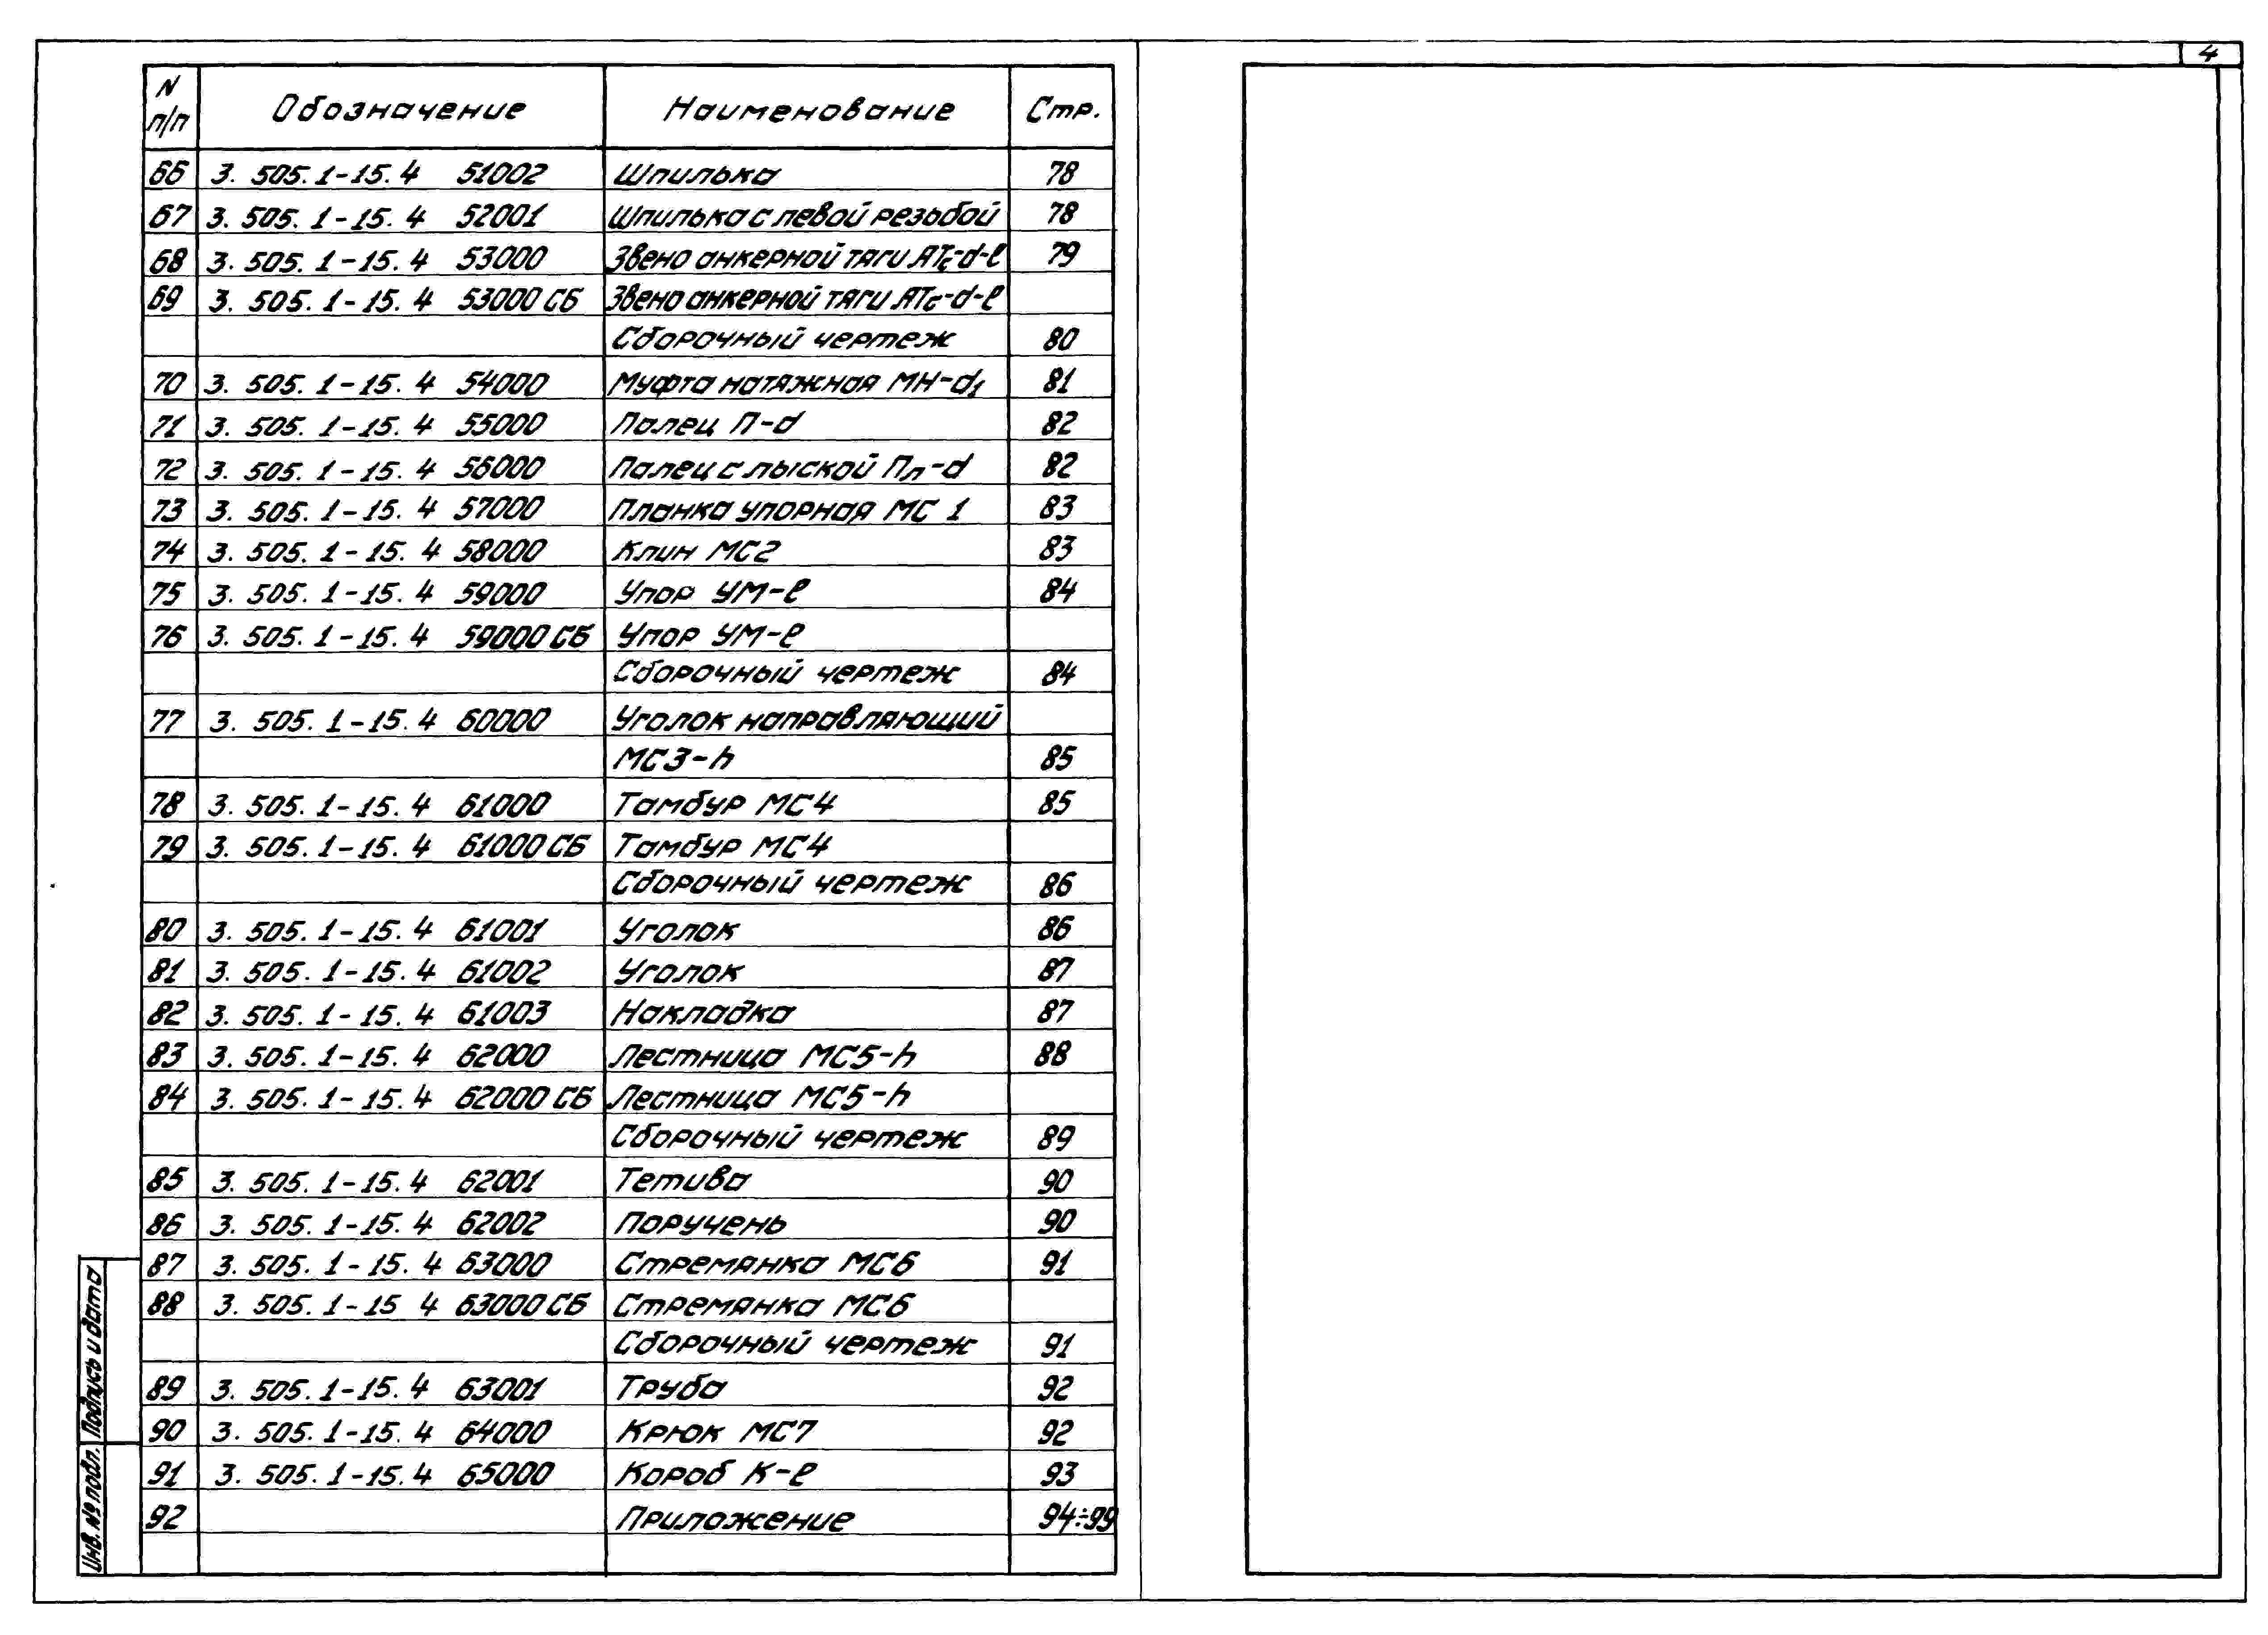 4
N п/п Обозначение Наименование Стр.
66 3. 505. 1-15. 4 51002 Шпилька 78
67 3. 505. 1-15. 4 52001 Шпилька с левой резьбой 78
68 3. 505. 1-15. 4 53000 Звено анкерной тяги АТс-d-ℓ 79
69 3. 505. 1-15. 4 53000 СБ Звено анкерной тяги АТс-d-ℓ
Сборочный чертеж 80
70 3. 505. 1-15. 4 54000 Муфта натяжная МН-d₁ 81
71 3. 505. 1-15. 4 55000 Палец П-d 82
72 3. 505. 1-15. 4 56000 Палец с лыской Пл-d 82
73 3. 505. 1-15. 4 57000 Планка упорная МС 1 83
74 3. 505. 1-15. 4 58000 Клин МС2 83
75 3. 505. 1-15. 4 59000 Упор УМ-ℓ 84
76 3. 505. 1-15. 4 59000 СБ Упор УМ-ℓ
Сборочный чертеж 84
77 3. 505. 1-15. 4 60000 Уголок направляющий
МС3-h 85
78 3. 505. 1-15. 4 61000 Тамбур МС4 85
79 3. 505. 1-15. 4 61000 СБ Тамбур МС4
Сборочный чертеж 86
80 3. 505. 1-15. 4 61001 Уголок 86
81 3. 505. 1-15. 4 61002 Уголок 87
82 3. 505. 1-15. 4 61003 Накладка 87
83 3. 505. 1-15. 4 62000 Лестница МС5-h 88
84 3. 505. 1-15. 4 62000 СБ Лестница МС5-h
Сборочный чертеж 89
85 3. 505. 1-15. 4 62001 Тетива 90
86 3. 505. 1-15. 4 62002 Поручень 90
87 3. 505. 1-15. 4 63000 Стремянка МС6 91
88 3. 505. 1-15 4 63000 СБ Стремянка МС6
Сборочный чертеж 91
89 3. 505. 1-15. 4 63001 Труба 92
90 3. 505. 1-15. 4 64000 Крюк МС7 92
91 3. 505. 1-15. 4 65000 Короб К-ℓ 93
92 Приложение 94÷99
Инв. № подл. Подпись и дата